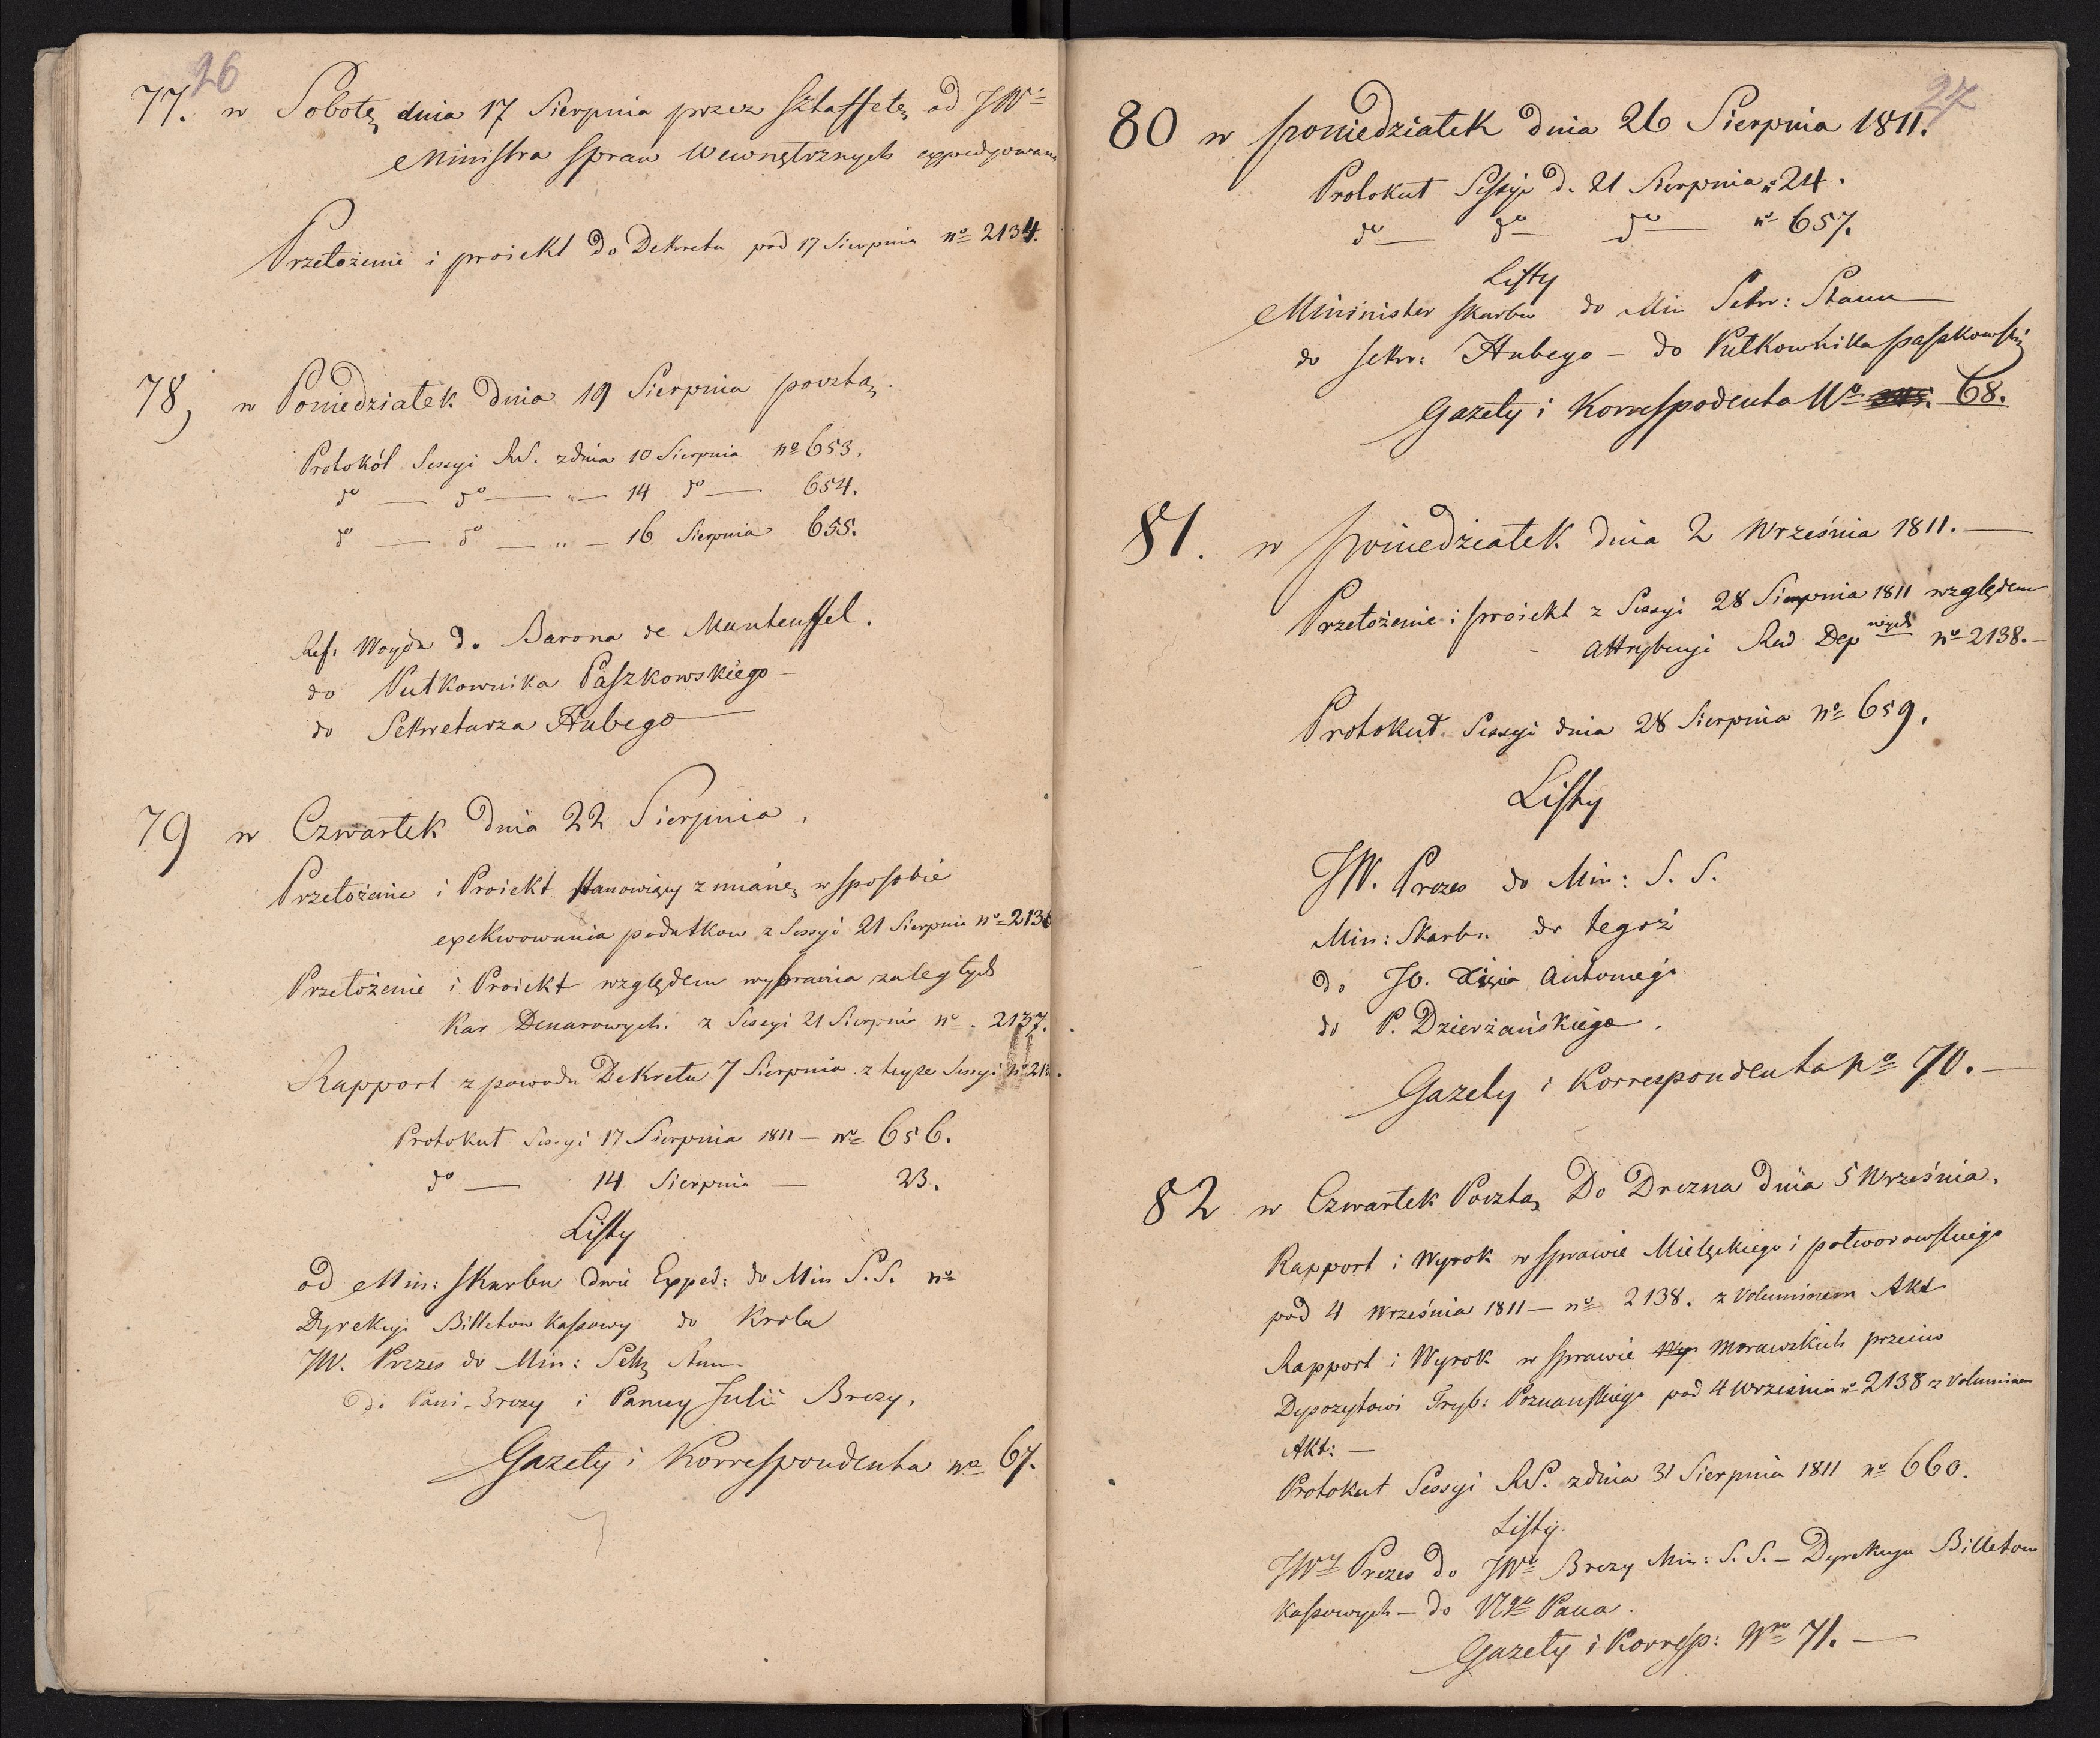 26
77. w Sobotę dnia 17 Sierpnia przez sztaffetę od JWº
Ministra spraw Wewnętrznych expedyowana
Przełożenie i proiekt do Dekretu pod 17 Sierpnia nº 2134.
78, w Poniedziałek dnia 19 Sierpnia pocztą.
Protokół Sessyi RS. z dnia 10 Sierpnia nº 653.
dº — dº — „ — 14 dº — 654.
dº — dº — „ — 16 Sierpnia 655.
Ref. Woyda do Barona de Manteuffel.
do Pułkownika Paszkowskiego —
do Sekretarza Hubego —
79 w Czwartek dnia 22 Sierpnia,
Przełożenie i Proiekt stanowiący zmianę w sposobie
exekwowania podatkow z Sessyi 21 Sierpnia nº 2136
Przełożenie i Proiekt względem wybrania zaległych
Kar Denarowych. z Sessyi 21 Sierpnia nº. 2137.
Rapport z powodu Dekretu 7 Sierpnia z teyże Sessyi nº
Protokuł Sessyi 17 Sierpnia 1811 — nº 656.
dº — 14 Sierpnia — 23.
Listy
od Min: Skarbu dwie Exped: do Min S.S. nº
Dyrekcyi Billetow Kassowy do Krola
JW. Prezes do Min: Sekr Stanu
do Pani Brezy i Panny Julii Brezy,
Gazety i Korrespondenta nº 67.
27
80 w poniedziałek dnia 26 Sierpnia 1811.
Protokuł Sessyi d. 21 Sierpnia nº 24.
dº — dº — dº — nº 657.
Listy
Mininister skarbu do Min Sekr: Stanu —
do sekr: Hubego — do Pułkownika paszkowski
Gazety i Korrespodenta Nº 68.
81. w poniedziałek dnia 2 Września 1811. —
Przełożenie i proiekt z Sessyi 28 Sierpnia 1811 względem
attrybucyi Rad Dep nych nº 2138. —
Protokuł Sessyi dnia 28 Sierpnia nº 659.
Listy
JW. Prezes do Min: S. S.
Min: Skarbu do tegoż
do JO. Xięcia Antoniego
do P. Dzierżańskiego.
Gazety i Korrespondenta nº 70. —
82 w Czwartek Pocztą Do Drezna dnia 5 Września.
Rapport i Wyrok w sprawie Mielęckiego i potworowskiego
pod 4 Września 1811 — nº 2138. z Voluminem Akt
Rapport i Wyrok w sprawie Wy Morawskich przeciw
Depozytowi Tryb: Poznańskiego pod 4 Września nº 2138 z Voluminem
Akt: —
Protokuł Sessyi RS. z dnia 31 Sierpnia 1811 nº 660.
Listy.
JWy Prezes do JWº Brezy Min: S. S. — Dyrekcya Billetow
Kassowych — do Ngo Pana.
Gazety i Korresp: Nro 71. —